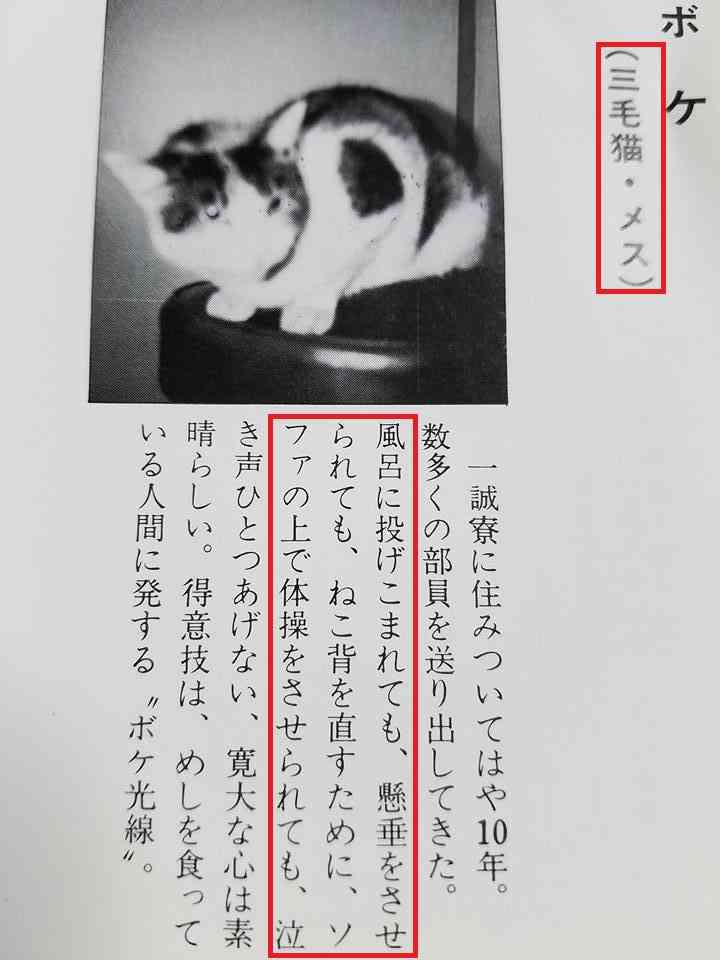 ボケ
（三毛猫・メス）
一誠寮に住みついてはや10年。
数多くの部員を送り出してきた。
風呂に投げこまれても、懸垂をさせ
られても、ねこ背を直すために、ソ
ファの上で体操をさせられても、泣
き声ひとつあげない、寛大な心は素
晴らしい。得意技は、めしを食って
いる人間に発する〝ボケ光線〟。